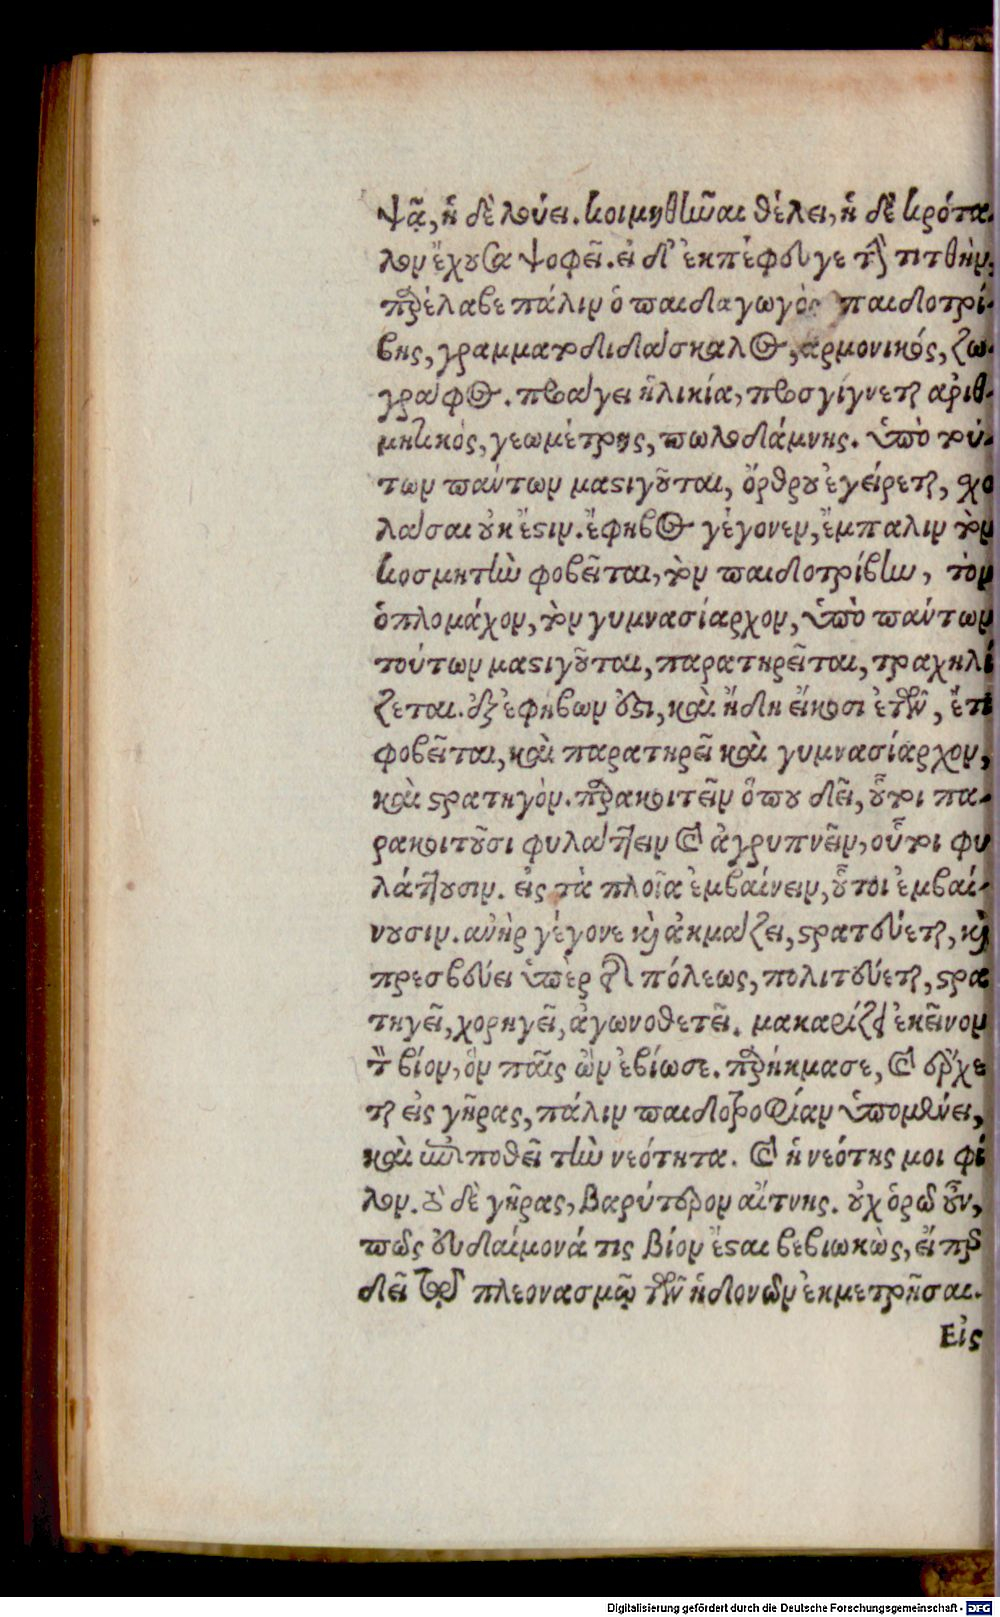 ψᾷ, ἡ δὲ λούει. κοιμηθῆναι θέλει, ἡ δὲ κρότα-
λον ἔχουσα ψοφεῖ. εἰ δ' ἐκπέφευγε τὴν τιτθὴν,
παρέλαβε πάλιν ὁ παιδαγωγὸς παιδοτρί-
βης, γραμματοδιδάσκαλος, ἁρμονικός, ζω-
γράφος. προάγει ἡλικία, προσγίγνεται ἀριθ-
μητικὸς, γεωμέτρης, πωλοδάμνης. ὑπὸ τού-
των πάντων μαστιγοῦται, ὄρθρου ἐγείρεται, σχο
λάσαι οὐκ ἔστιν. ἔφηβος γέγονεν, ἔμπαλιν τὸν
κοσμητὴν φοβεῖται, τὸν παιδοτρίβην, τὸν
ὁπλομάχον, τὸν γυμνασίαρχον, ὑπὸ πάντων
τούτων μαστιγοῦται, παρατηρεῖται, τραχηλί
ζεται. ἐξ ἐφήβων ἐστι, καὶ ἤδη εἴκοσι ἐτῶν, ἔτι
φοβεῖται, καὶ παρατηρεῖ καὶ γυμνασίαρχον,
καὶ στρατηγὸν. παρακοιτεῖν ὅπου δεῖ, οὗτοι πα-
ρακοιτοῦσι φυλάττειν καὶ ἀγρυπνεῖν, οὗτοι φυ
λάττουσιν. εἰς τὰ πλοῖα ἐμβαίνειν, οὗτοι ἐμβαί-
νουσιν. ἀνὴρ γέγονε καὶ ἀκμάζει, στρατεύεται, καὶ
πρεσβεύει ὑπὲρ τῆς πόλεως, πολιτεύεται, στρα
τηγεῖ, χορηγεῖ, ἀγωνοθετεῖ. μακαρίζει ἐκεῖνον
τὸν βίον, ὃν παῖς ὢν ἐβίωσε. παρήκμασε, καὶ ἔρχε
ται εἰς γῆρας, πάλιν παιδοτροφίαν ὑπομένει,
καὶ ἐπιποθεῖ τὴν νεότητα. καὶ ἡ νεότης μοι φί
λον. τὸ δὲ γῆρας, βαρύτερον αἴτνης. οὐχ ὁρῶ οὖν,
πῶς εὐδαίμονά τις βίον ἔσται βεβιωκὼς, εἴπερ
δεῖ τῷ πλεονασμῷ τῶν ἡδονῶν ἐκμετρῆσαι.
Εἰς
Digitalisierung gefördert durch die Deutsche Forschungsgemeinschaft - DFG